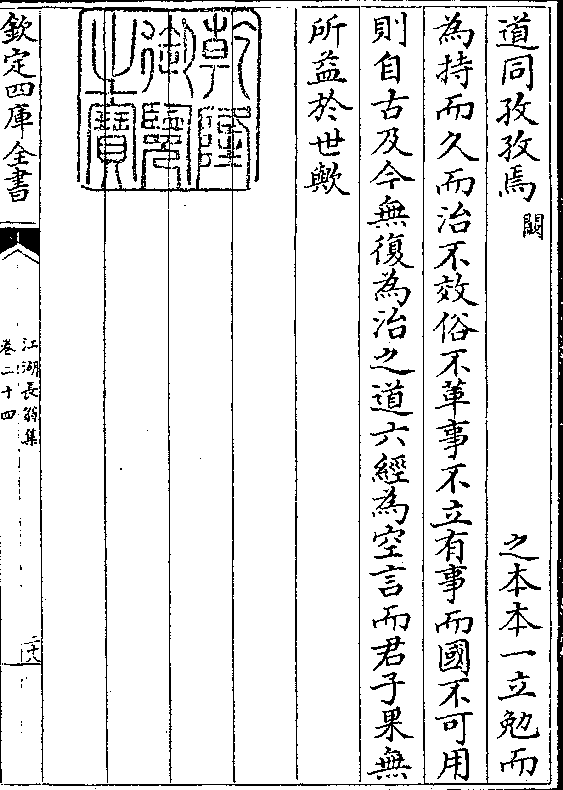 道同孜孜焉 闕 之本本一立勉而
為持而久而治不效俗不革事不立有事而國不可用
則自古及今無復為治之道六經為空言而君子果無
所益於世歟
乾隆御覽之寶
欽定四庫全書
江湖長翁集
卷二十四